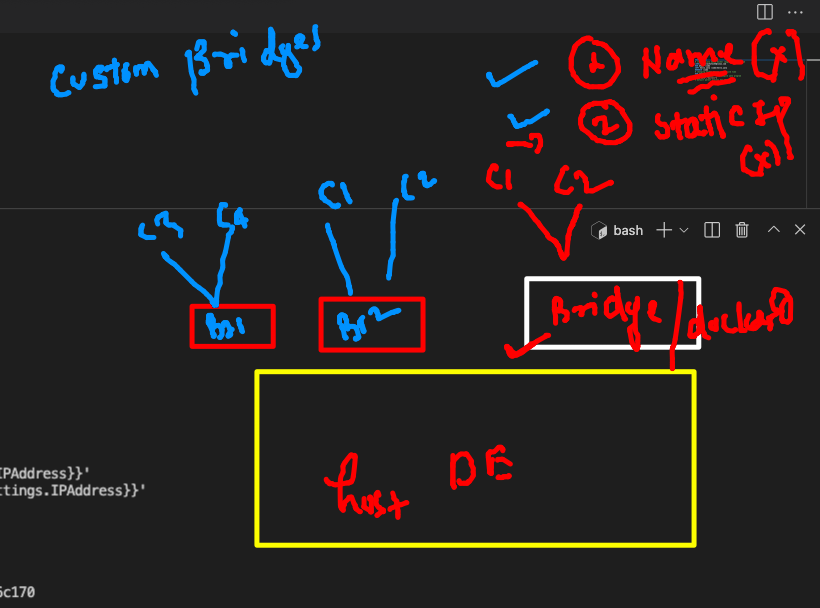 Custom Bridges
1 Name (x)
2 Static Ip
(x)
C1 C2
C1 C2
C3 C4
bash
Br1
Br2
Bridge docker0
host DE
IPAddress}}'
ttings.IPAddress}}'
6c170